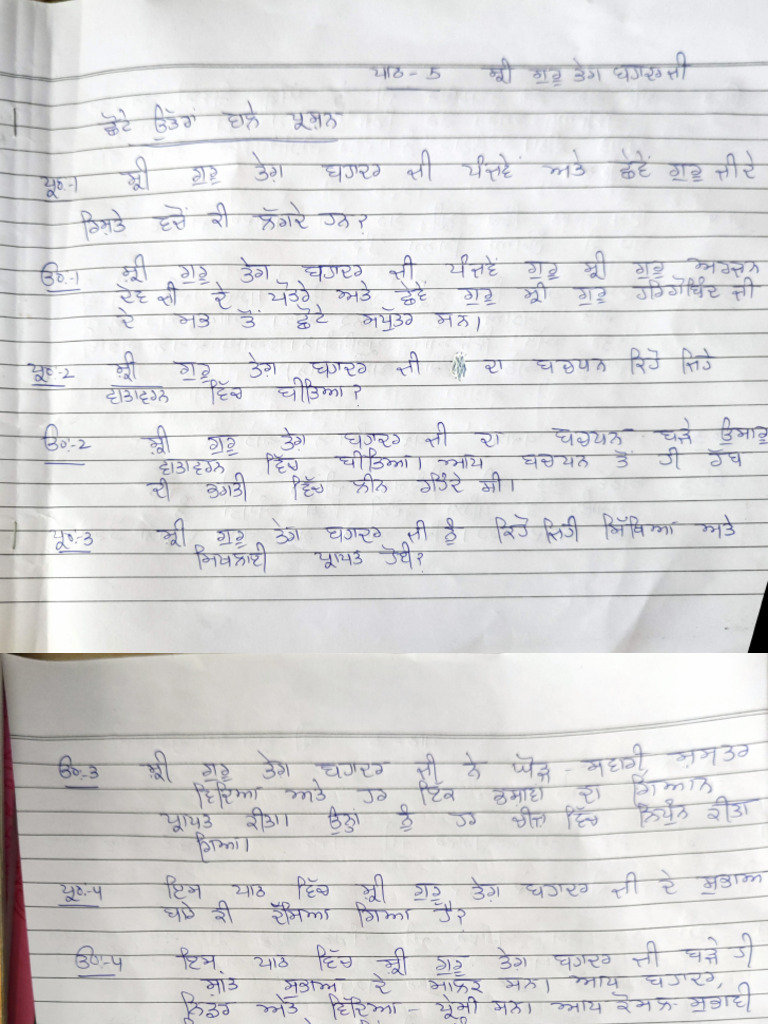 ਪਾਠ - 5 ਸ਼੍ਰੀ ਗੁਰੂ ਤੇਗ ਬਹਾਦਰ ਜੀ
ਛੋਟੇ ਉੱਤਰਾਂ ਵਾਲੇ ਪ੍ਰਸ਼ਨ
ਪ੍ਰ:-1 ਸ਼੍ਰੀ ਗੁਰੂ ਤੇਗ਼ ਬਹਾਦਰ ਜੀ ਪੰਜਵੇਂ ਅਤੇ ਛੇਵੇਂ ਗੁਰੂ ਜੀ ਦੇ
ਰਿਸ਼ਤੇ ਵਜੋਂ ਕੀ ਲੱਗਦੇ ਹਨ?
ਉ:-1 ਸ਼੍ਰੀ ਗੁਰੂ ਤੇਗ ਬਹਾਦਰ ਜੀ ਪੰਜਵੇਂ ਗੁਰੂ ਸ਼੍ਰੀ ਗੁਰੂ ਅਰਜਨ
ਦੇਵ ਜੀ ਦੇ ਪੋਤਰੇ ਅਤੇ ਛੇਵੇਂ ਗੁਰੂ ਸ਼੍ਰੀ ਗੁਰੂ ਹਰਿਗੋਬਿੰਦ ਜੀ
ਦੇ ਸਭ ਤੋਂ ਛੋਟੇ ਸਪੁੱਤਰ ਸਨ।
ਪ੍ਰ:-2 ਸ਼੍ਰੀ ਗੁਰੂ ਤੇਗ ਬਹਾਦਰ ਜੀ ਦਾ ਬਚਪਨ ਕਿਹੋ ਜਿਹੇ
ਵਾਤਾਵਰਨ ਵਿੱਚ ਬੀਤਿਆ?
ਉ:-2 ਸ਼੍ਰੀ ਗੁਰੂ ਤੇਗ਼ ਬਹਾਦਰ ਜੀ ਦਾ ਬਚਪਨ ਬੜੇ ਉਸਾਰੂ
ਵਾਤਾਵਰਨ ਵਿੱਚ ਬੀਤਿਆ। ਆਪ ਬਚਪਨ ਤੋਂ ਹੀ ਰੱਬ
ਦੀ ਭਗਤੀ ਵਿੱਚ ਲੀਨ ਰਹਿੰਦੇ ਸੀ।
ਪ੍ਰ:-3 ਸ਼੍ਰੀ ਗੁਰੂ ਤੇਗ ਬਹਾਦਰ ਜੀ ਨੂੰ ਕਿਹੋ ਜਿਹੀ ਸਿੱਖਿਆ ਅਤੇ
ਸਿਖਲਾਈ ਪ੍ਰਾਪਤ ਹੋਈ?
ਉ:-3 ਸ਼੍ਰੀ ਗੁਰੂ ਤੇਗ ਬਹਾਦਰ ਜੀ ਨੇ ਘੋੜ - ਸਵਾਰੀ, ਸ਼ਸਤਰ
ਵਿੱਦਿਆ ਅਤੇ ਹਰ ਇੱਕ ਭਾਸ਼ਾ ਦਾ ਗਿਆਨ
ਪ੍ਰਾਪਤ ਕੀਤਾ। ਉਨ੍ਹਾਂ ਨੂੰ ਹਰ ਚੀਜ਼ ਵਿੱਚ ਨਿਪੁੰਨ ਕੀਤਾ
ਗਿਆ।
ਪ੍ਰ:-4 ਇਸ ਪਾਠ ਵਿੱਚ ਸ਼੍ਰੀ ਗੁਰੂ ਤੇਗ਼ ਬਹਾਦਰ ਜੀ ਦੇ ਸੁਭਾਅ
ਬਾਰੇ ਕੀ ਦੱਸਿਆ ਗਿਆ ਹੈ?
ਉ:-4 ਇਸ ਪਾਠ ਵਿੱਚ ਸ਼੍ਰੀ ਗੁਰੂ ਤੇਗ਼ ਬਹਾਦਰ ਜੀ ਬੜੇ ਹੀ
ਸ਼ਾਂਤ ਸੁਭਾਅ ਦੇ ਮਾਲਕ ਸਨ। ਆਪ ਬਹਾਦਰ,
ਨਿਡਰ ਅਤੇ ਵਿੱਦਿਆ - ਪ੍ਰੇਮੀ ਸਨ। ਆਪ ਕੋਮਲ- ਸੁਭਾਵੀ